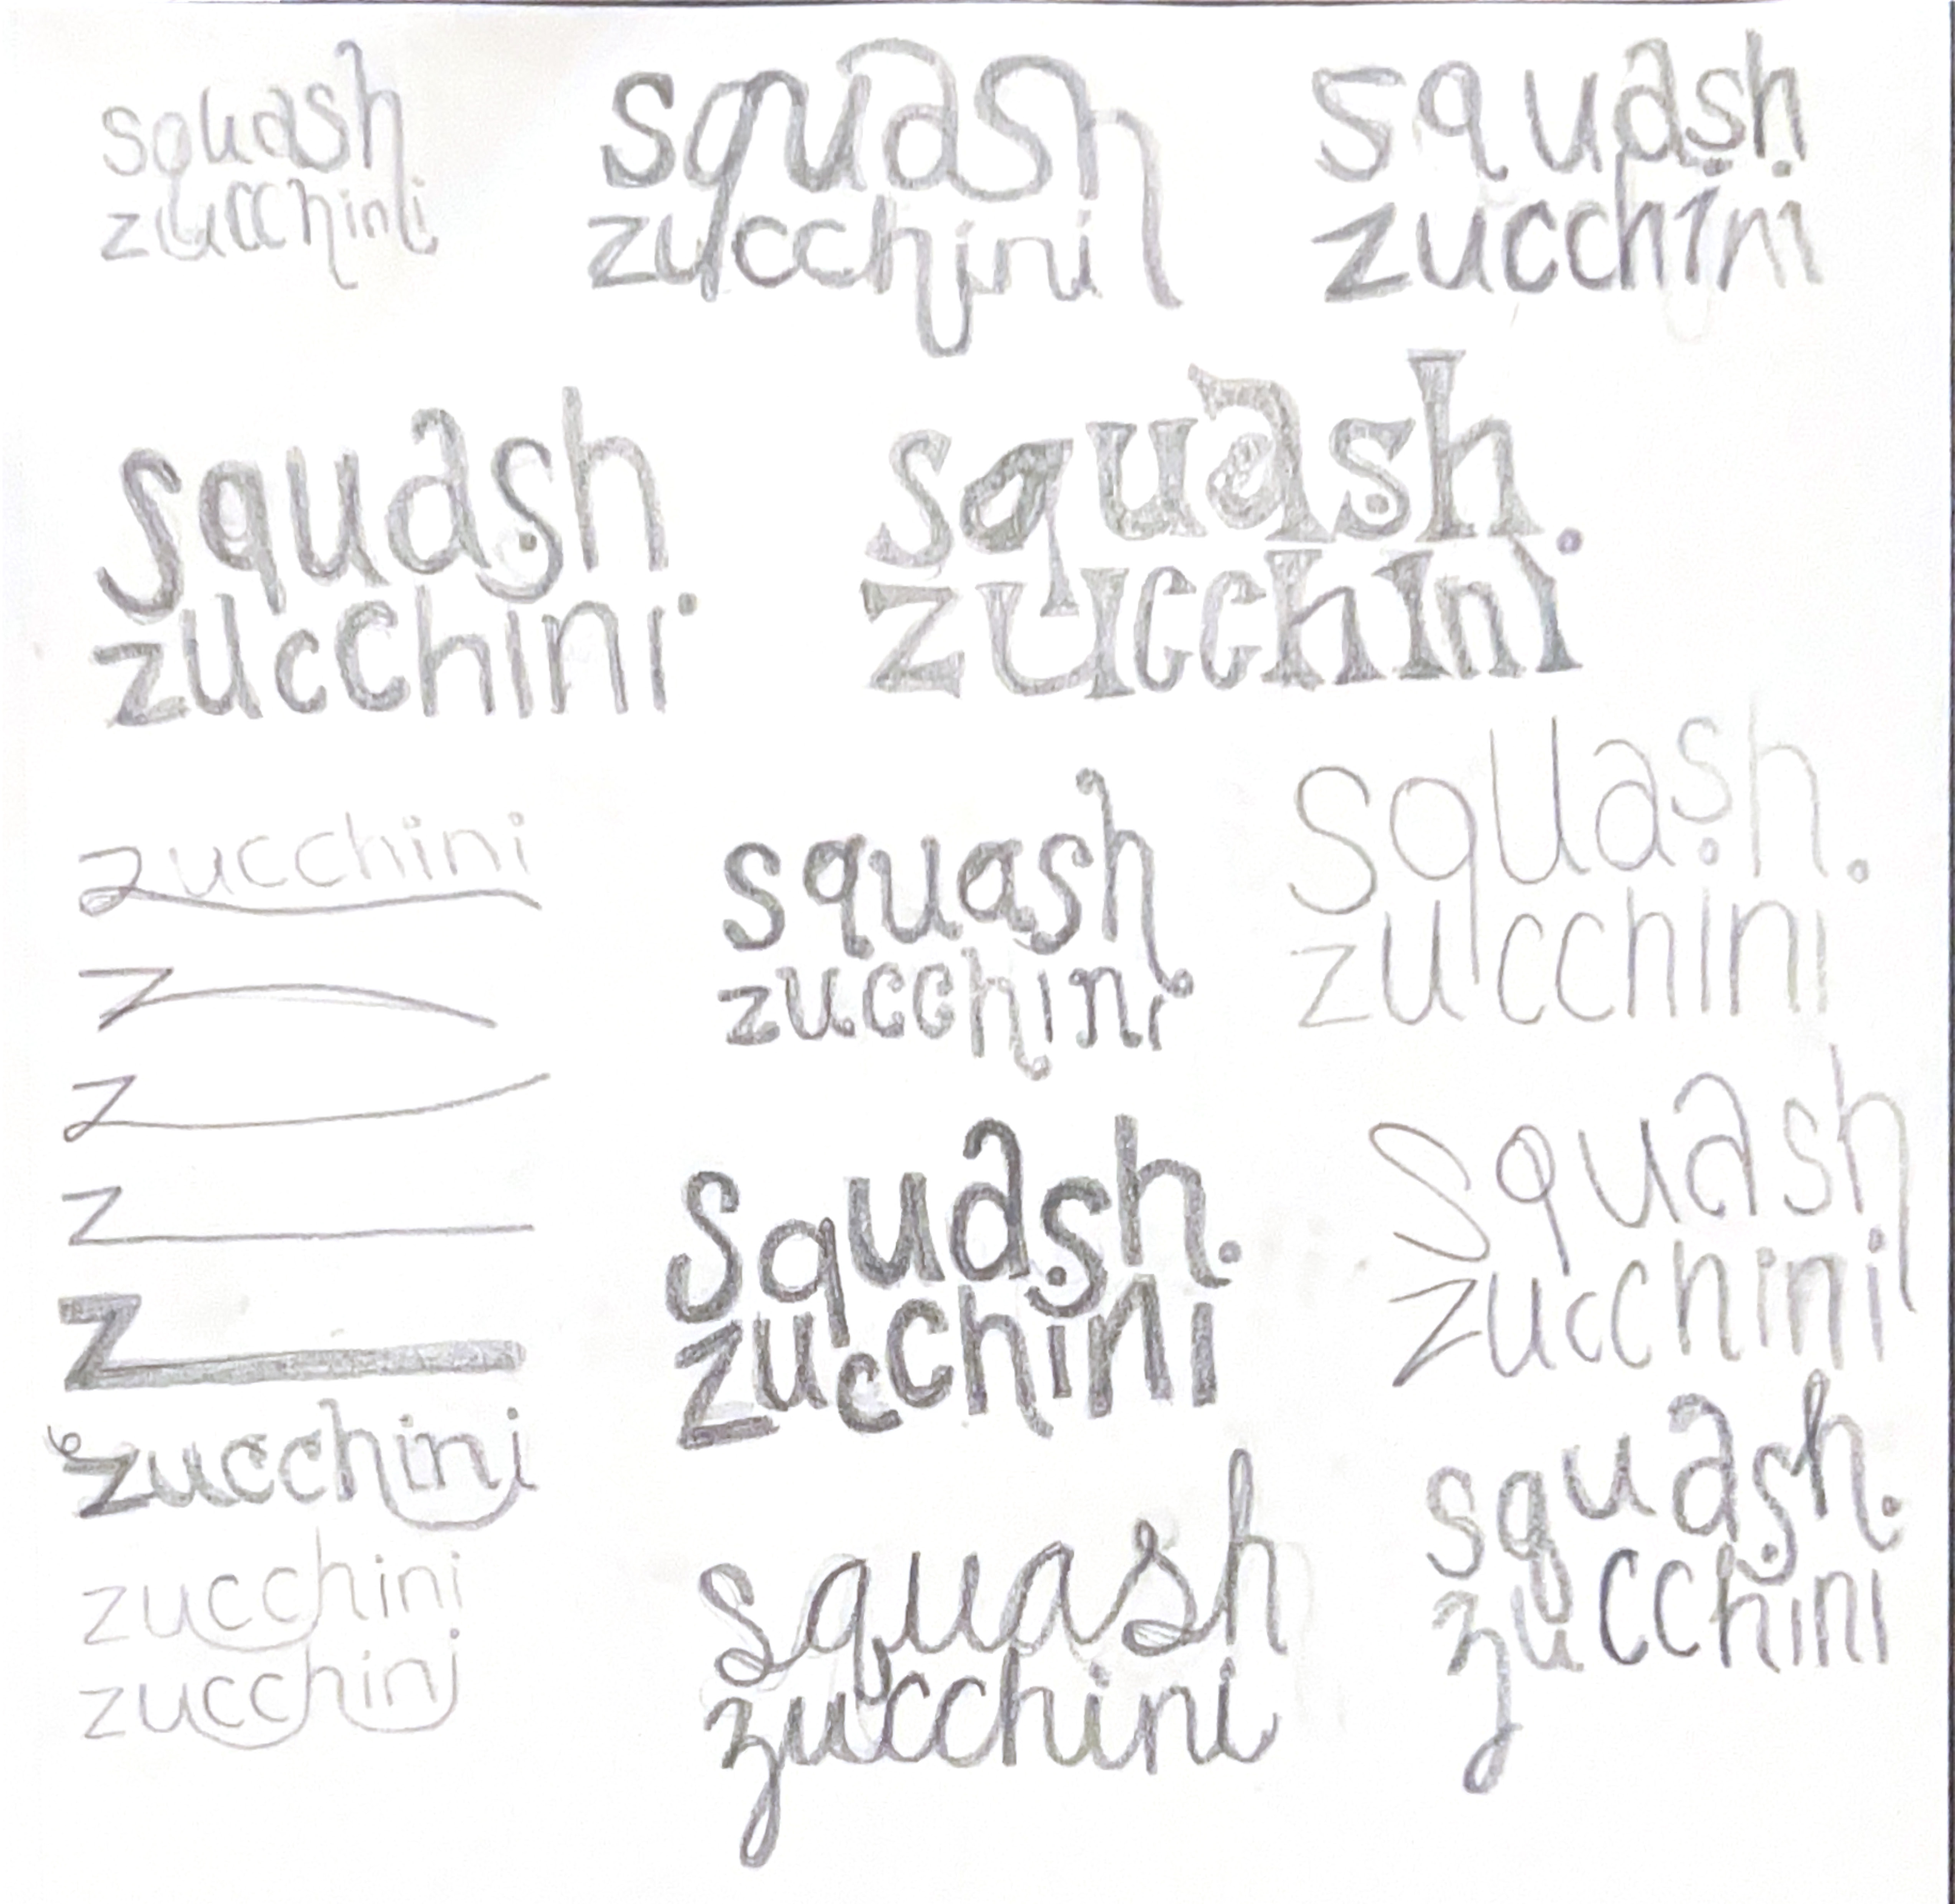 squash
zucchini
squash
zucchini
squash
zucchini
squash
zucchini
squash
zucchini
zucchini
z
z
z
z
zucchini
zucchini
zucchini
squash
zucchini
squash
zucchini
squash
zucchini
squash
zucchini
squash
zucchini
squash
zucchini